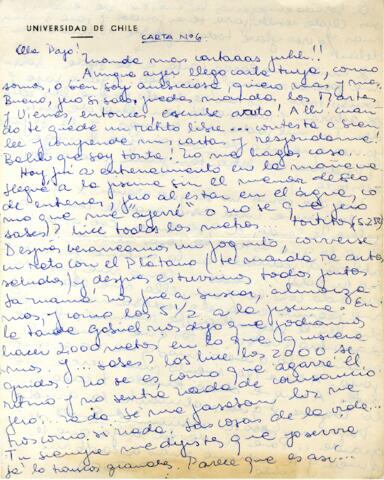 UNIVERSIDAD DE CHILE
CARTA Nº6
Manda mas cartaaas !!
Aunque ayer llego carta tuya, como
somos, o bien soy ansiosa, quiero mas y mas.
Bueno, pero si solo puedes mandar los Martes
y Viernes, entonces, escribe
do te quede un ratito libre... contesta o sea
lee y comprende mis cartas y respóndame!
que soy tonta! No me hagas caso...
Hoy, fui a entrenamiento en la mañana
llegué a la piscina sin el menor deseo
de entrenar, pero al estar en el agua, co
mo que me o no se que pero
sabes? hice todos los metros... (5.200)
Después un poquito, conversé
un rato con el Plátano (te manda
saludos) y después estuvimos todos juntos
La mamá nos fue a buscar, almorza-
mos, y como las 5½ a la piscina. En
la tarde Gabriel nos dijo que podiamos
hacer 2000 metros en lo que quisiera
mos y... sabes? los hice los 2000 se
guidos. No se es como que agarre el
ritmo y no sentia nada de cansancio
pero... nada se me pasaban los me
tros como si nada. Las cosas de la vida...
Tu siempre me dijistes que yo servia
pa' los tramos grandes. Parece que es así...